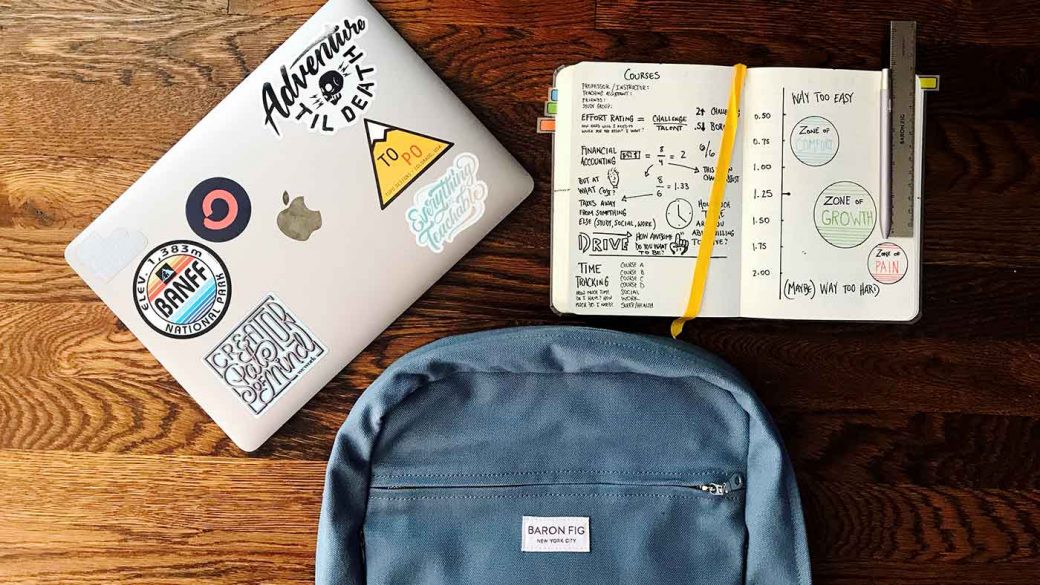 Adventure
TIL DEATH
TO PO
Everything
is
Teachable
ELEV. 1,383m
BANFF
NATIONAL PARK
CREATOR
State
of Mind
COURSES
PROFESSOR / INSTRUCTOR:
TEACHING ASSISTANT:
FRIENDS:
STUDY GROUP:
EFFORT RATING = CHALLENGE
TALENT
FINANCIAL
ACCOUNTING
= 8
4 = 2
6/6
BUT AT
WHAT COST?
8
6 = 1.33
TAKES AWAY
FROM SOMETHING
ELSE (STUDY, SOCIAL, WORK)
HOW MUCH
TIME
ARE YOU
DRIVE
HOW AWESOME
DO YOU WANT
TO BE?
TIME
TRACKING
HOW MUCH TIME
DO I HAVE? HOW
MUCH DO I NEED?
COURSE A
COURSE B
COURSE C
COURSE D
SOCIAL
WORK
SLEEP/HEALTH
WAY TOO EASY
0.50
0.75
1.00
1.25
1.50
1.75
2.00
ZONE OF
COMFORT
ZONE OF
GROWTH
ZONE OF
PAIN
(MAYBE) WAY TOO HARD
BARON FIG
BARON FIG
NEW YORK CITY